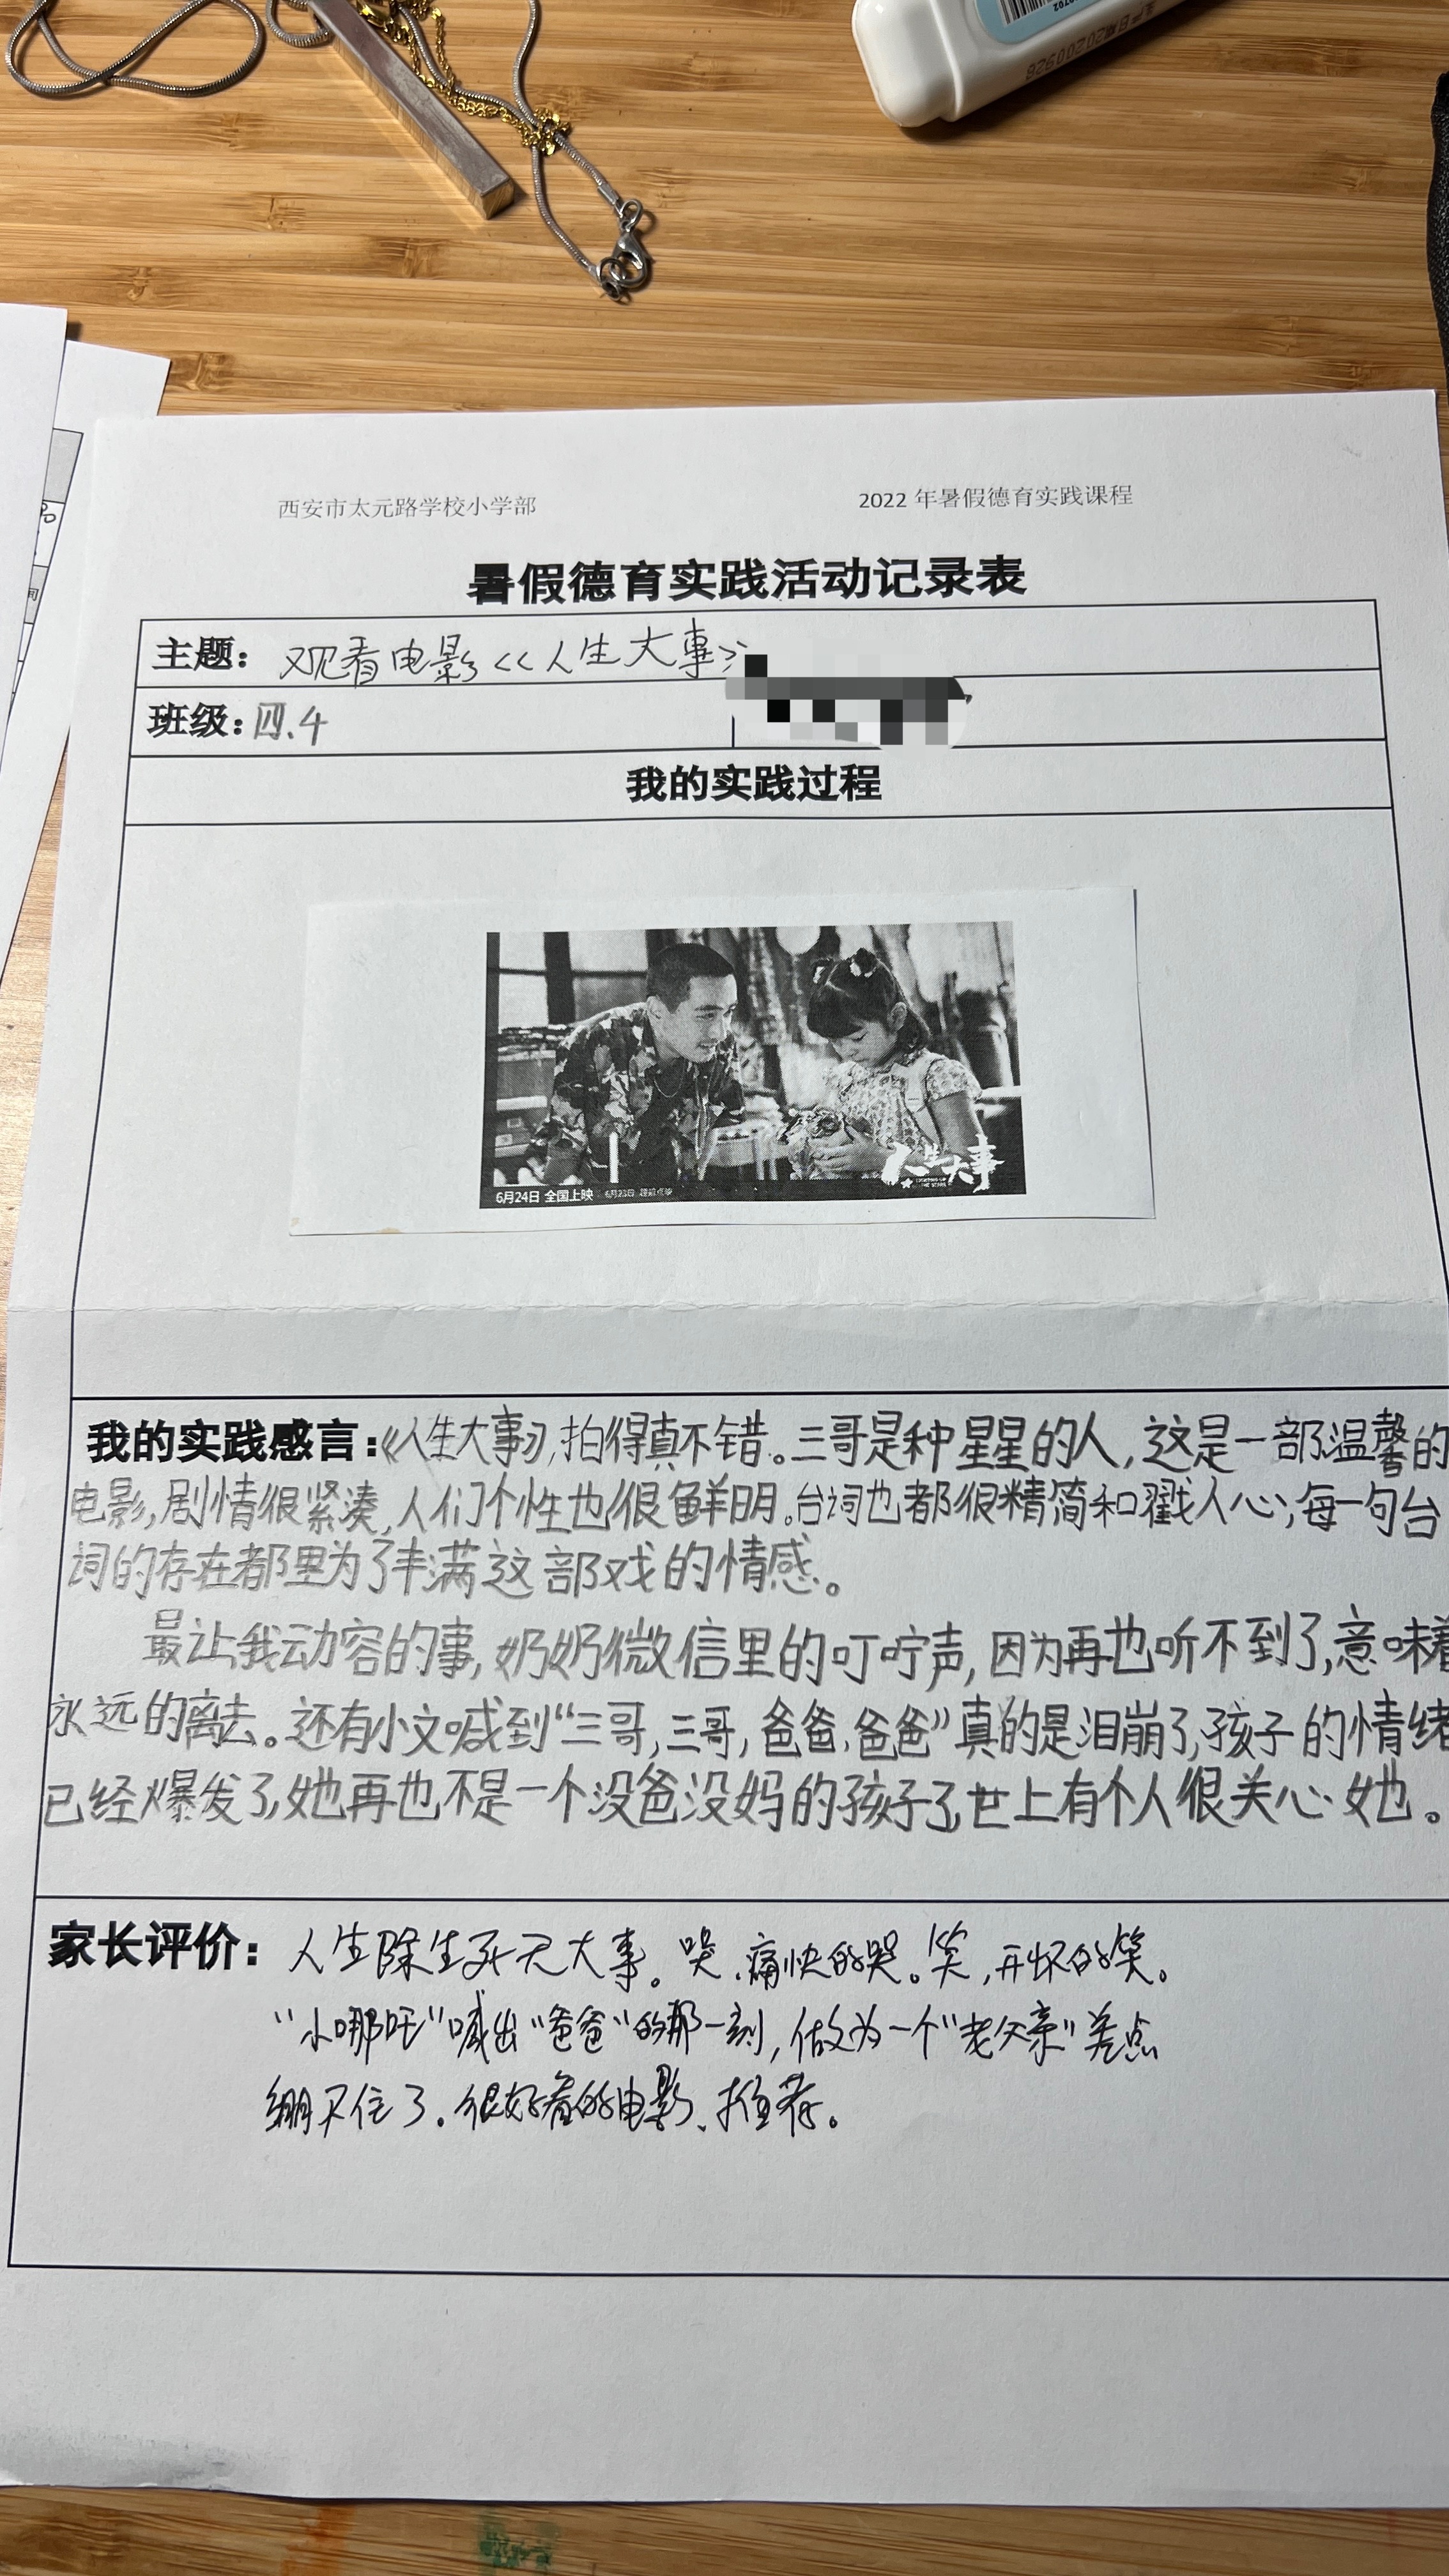 20200926
西安市太元路学校小学部
2022 年暑假德育实践课程
暑假德育实践活动记录表
主题：观看电影<<人生大事>>
班级：四.4
我的实践过程
人生大事
6月24日 全国上映
我的实践感言：《人生大事》，拍得真不错。三哥是种星星的人，这是一部温馨的
电影，剧情很紧凑，人们个性也很鲜明。台词也都很精简和戳人心；每一句台
词的存在都里为了丰满这部戏的情感。
最让我动容的事，奶奶微信里的叮咛声，因为再也听不到了，意味着
永远的离去。还有小文喊到“三哥，三哥，爸爸，爸爸”真的是泪崩了，孩子的情绪
已经爆发了，她再也不是一个没爸没妈的孩子了，世上有个人很关心她。
家长评价：人生除生死无大事。哭，痛快的哭。笑，开怀的笑。
“小哪吒”喊出“爸爸”的那一刻，做为一个“老父亲”差点
绷不住了。很好看的电影、推荐。